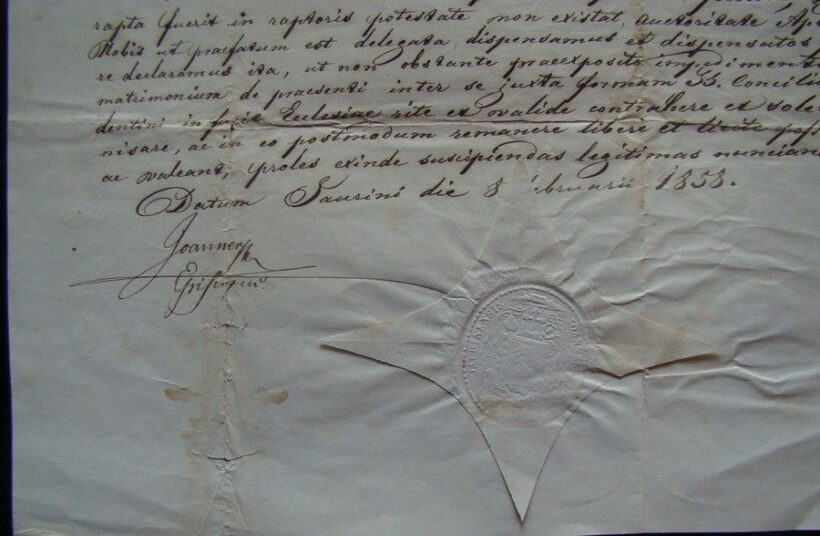 rapta fuerit in raptoris potestate non existat, auctoritate Ap
Nobis ut praefatum est delegata, dispensamus et dispensatos
re declaramus ita, ut non obstante praeexposito impedimento
matrimonium de praesenti inter se juxta formam SS. Concilii
dentini in facie Ecclesiae rite et valide contrahere et sole
nisare, ac in eo postmodum remanere libere et licite poss
ac valeant, proles exinde suscipiendas legitimas nuncian
Datum Jaurini die 8 ebruarii 1858.
Joannes
Episcopus